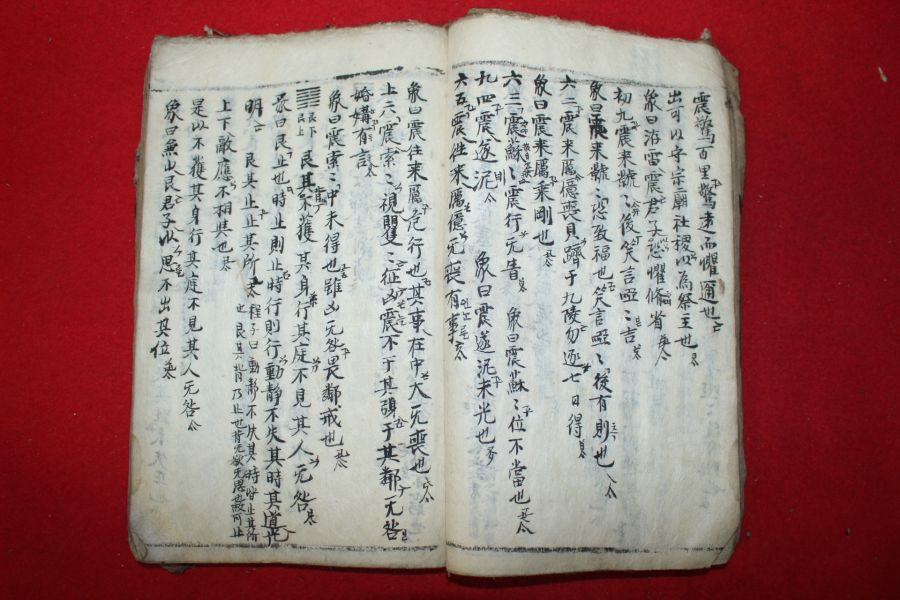 震驚百里驚遠而懼邇也
出可以守宗廟社稷以為祭主也
象曰洊雷震君子以恐懼脩省
初九震來虩〻後笑言啞〻吉
象曰震來虩〻恐致福也笑言啞〻後有則也
六二震來厲億喪貝躋于九陵勿逐七日得
象曰震來厲乘剛也
六三震蘇〻震行无眚 象曰震蘇〻位不當也
九四震遂泥 象曰震遂泥未光也
六五震往來厲億无喪有事
象曰震往來厲危行也其事在中大无喪也
上六震索〻視矍〻征凶震不于其躬于其鄰无咎
婚媾有言
象曰震索〻中未得也雖凶无咎畏鄰戒也
艮下艮上 艮其背不獲其身行其庭不見其人无咎
彖曰艮止也時止則止時行則行動靜不失其時其道光
明 艮其止止其所 程子曰動靜不失其時皆止其所
也艮其背乃止也背无欲无思故可止
上下敵應不相與也
是以不獲其身行其庭不見其人无咎
象曰兼山艮君子以思不出其位